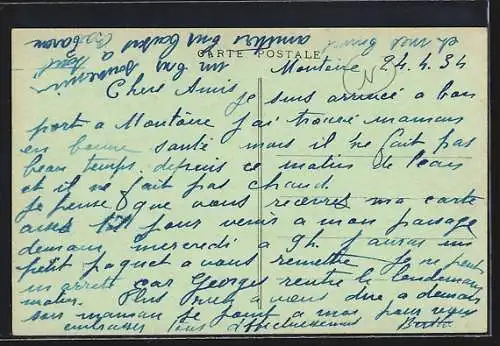 CARTE POSTALE
Montoire 24.4.34
Chers Amis
je suis arrivée a bon
port a Montoire j'ai trouvé maman
en bonne santé mais il ne fait pas
beau temps depuis ce matin de l'eau
et il ne fait pas chaud.
Je pense que vous recevrez ma carte
assez tôt pour venir a mon passage
demain mercredi a 9h. J'aurai un
petit paquet a vous remettre. Je ne peux
m'arreter car Georges rentre le lendemain
matin. Plus rien a vous dire a demain
son maman se joint a moi pour vous
embrasser Tous affectueusement Berthe
un bon souvenir
a tout